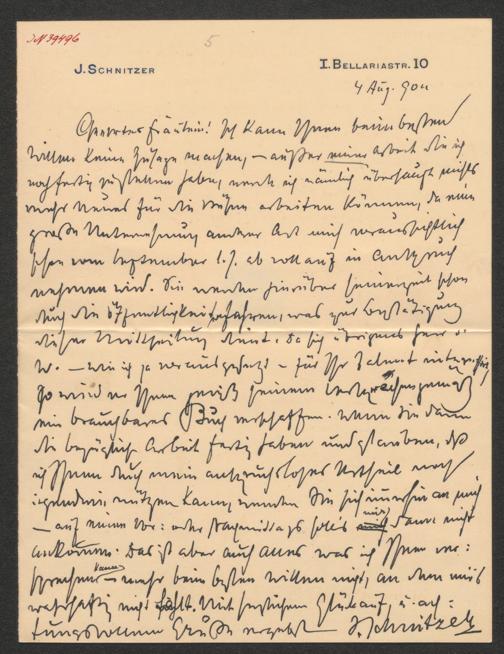 JN 39496
5
J. SCHNITZER
I. BELLARIASTR. 10
4 Aug. 904
Geehrtes Fräulein! Ich kann Ihnen beim besten
Willen keine Zusage machen, – außer meiner Arbeit die ich
noch fertig zu stellen habe, werde ich nämlich überhaupt nichts
mehr Neues für die Bühne arbeiten können, da eine
große Unternehmung anderer Art mich voraussichtlich
schon vom September l. J. ab vollauf in Anspruch
nehmen wird. Sie werden hierüber seinerzeit schon
durch die Öffentlichkeit erfahren, was zur Bestätigung
dieser Mittheilung dient. Da sich übrigens Herr
W. – wie ich ja vorausgesetzt – für Ihr Talent interessirt,
so wird er Ihnen gewiß seinem
ein brauchbares Buch verschaffen. Wenn Sie dann
die bezügliche Arbeit fertig haben und glauben, daß
ich Ihnen durch mein anspruchsloses Urtheil noch
irgendwie nützen kann, wenden Sie sich immerhin an mich
– auf einen Vor- oder Nachmittag soll's mir dann nicht
ankommen. Das ist aber auch alles was ich Ihnen ver-
sprechen kann – mehr beim besten Willen nicht, an dem mir's
wahrhaftig nicht fehlt. Mit herzlichem Glückauf, u. ach-
tungsvollem Gruße ergebst J. Schnitzer